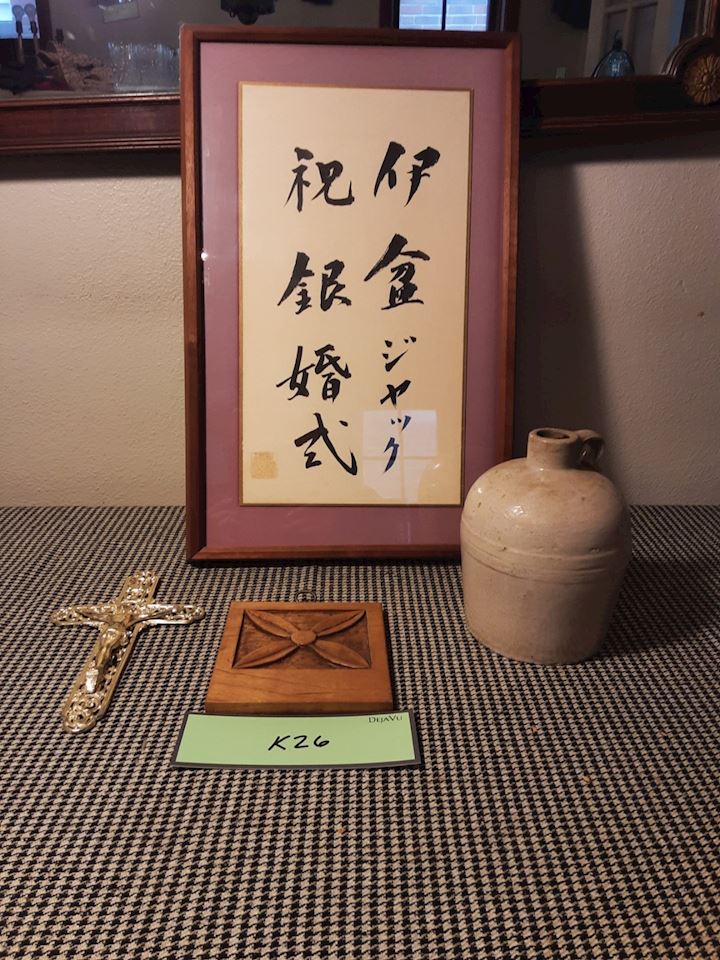 伊盆ジャック
祝銀婚式
DEJAVU
K26